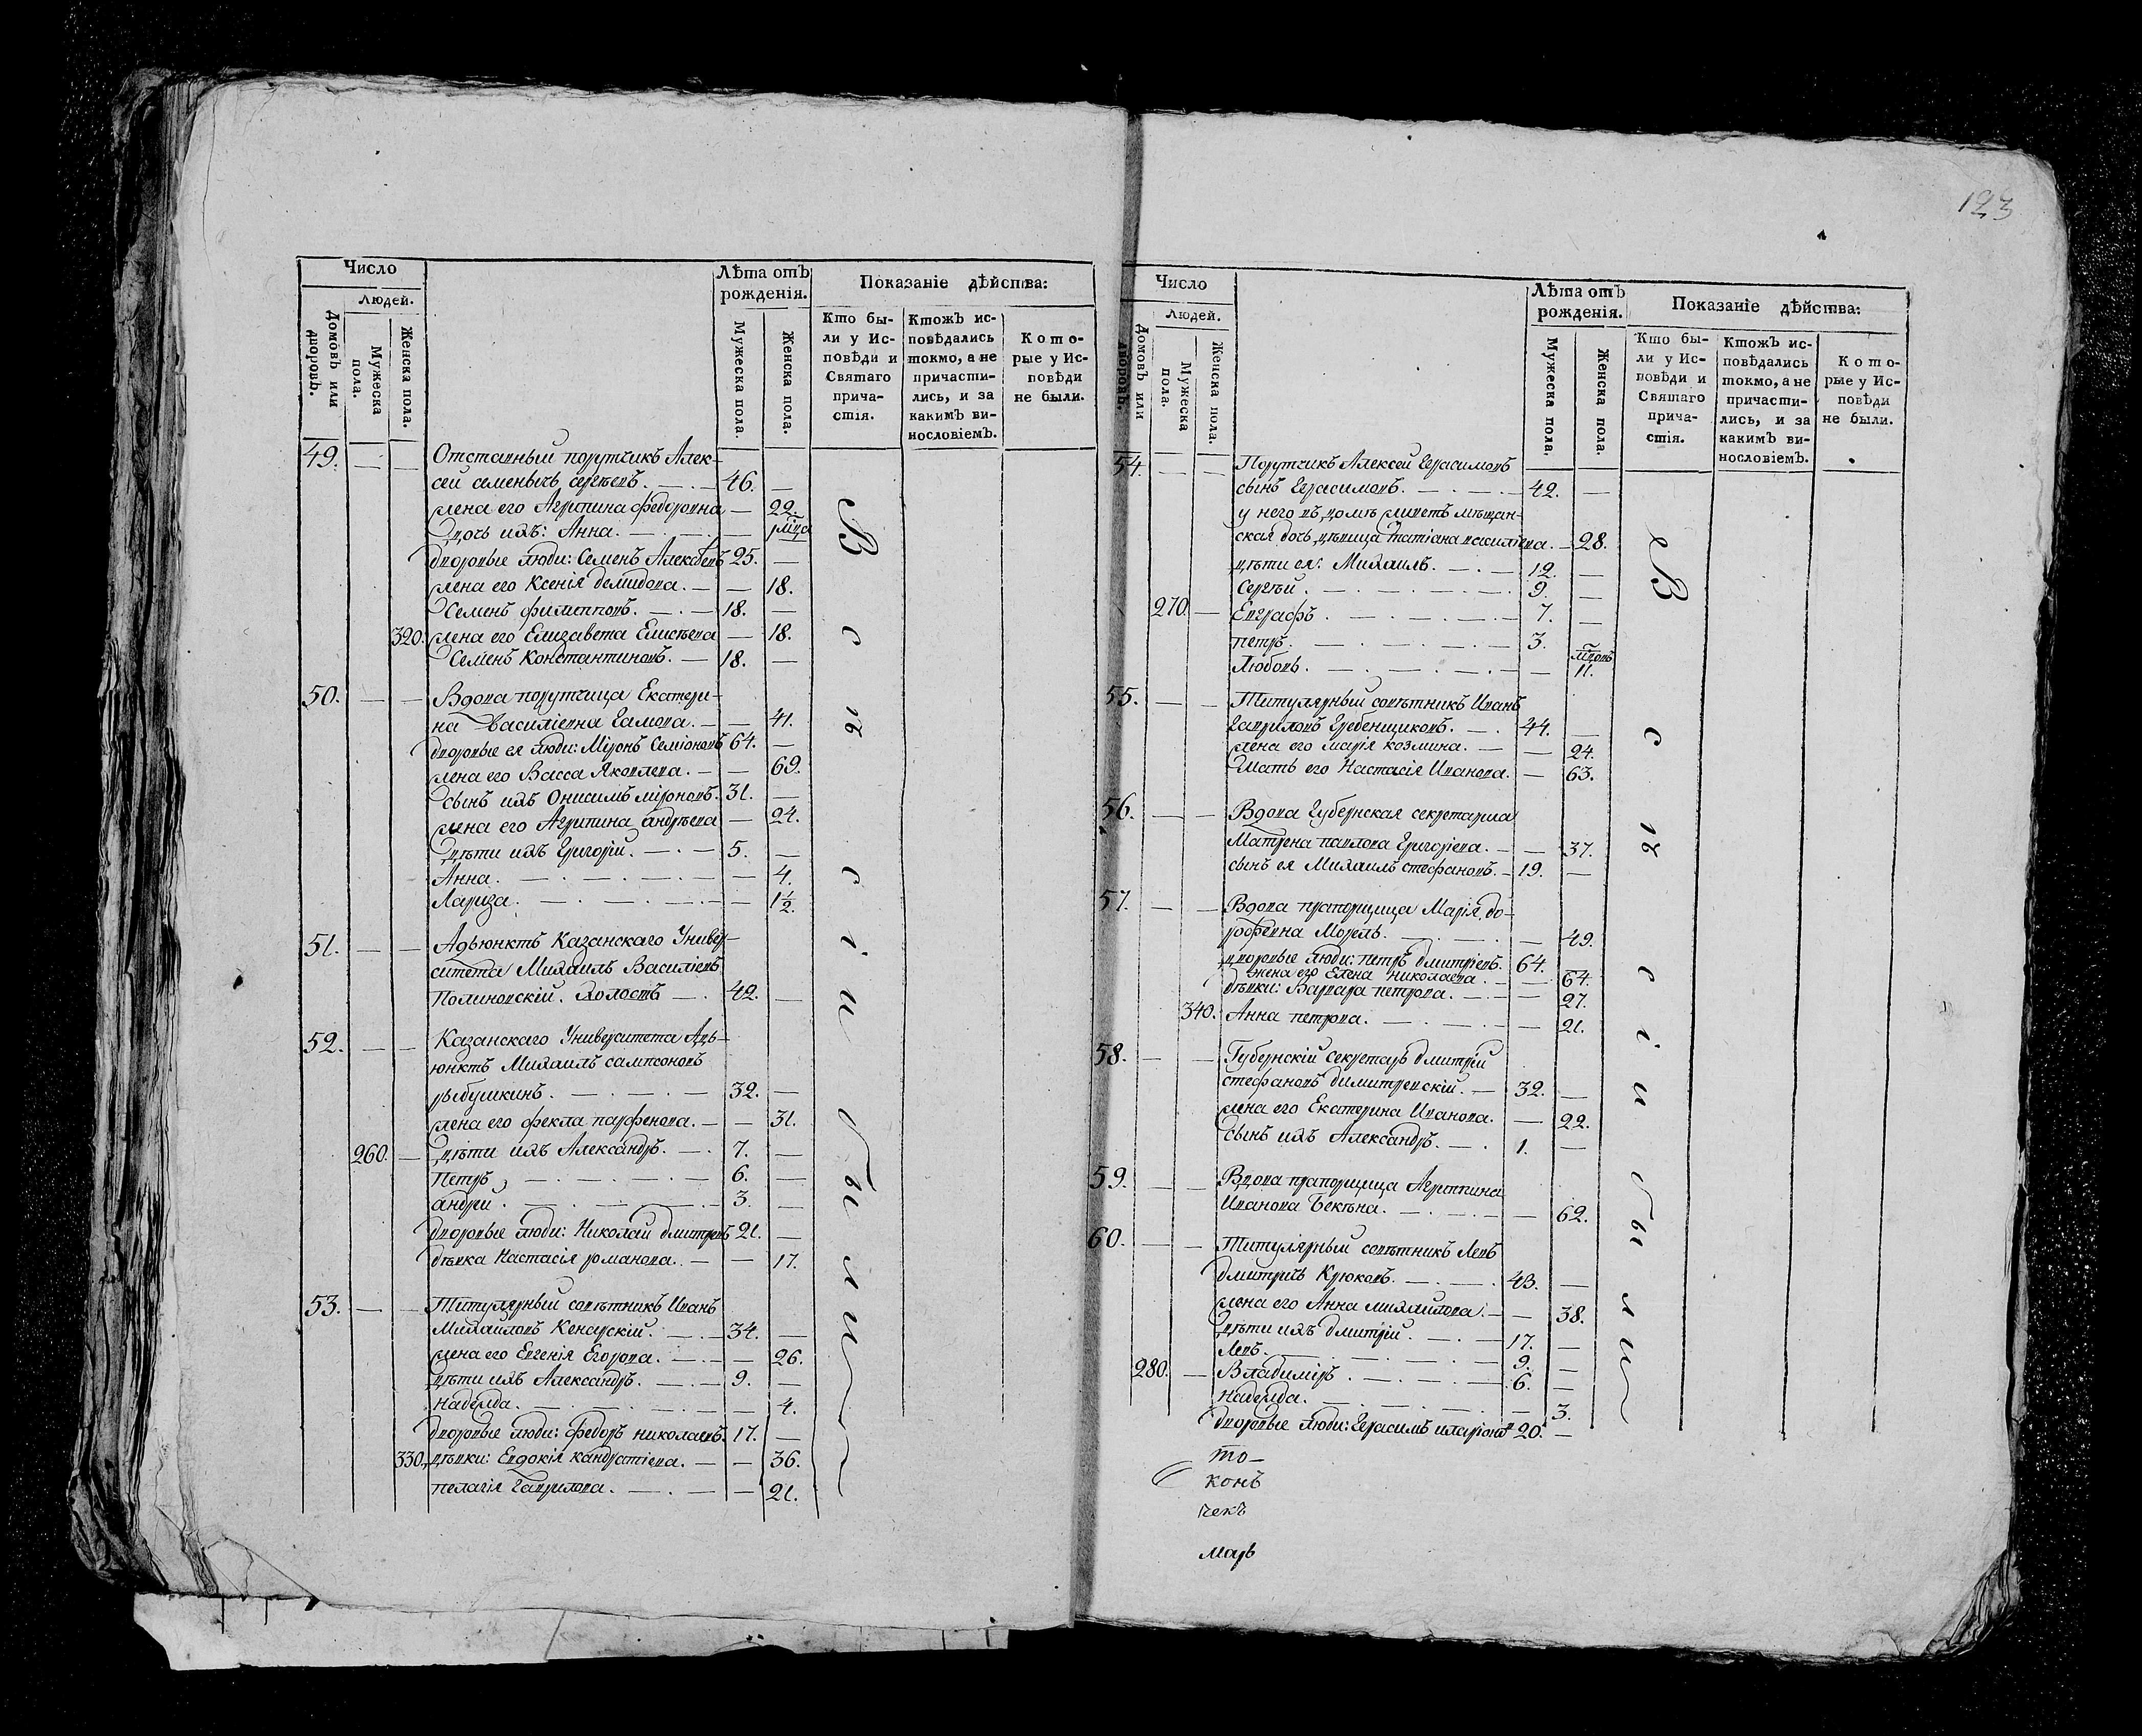 123
Число
Людей.
Домовъ или дворовъ.
Мужеска пола.
Женска пола.
Лѣта отъ рожденія.
Мужеска пола.
Женска пола.
Показаніе дѣйства:
Кто бы-
ли у Ис-
повѣди и
Святаго
прича-
стія.
Ктожъ ис-
повѣдались
токмо, а не
причасти-
лись, и за
какимъ ви-
нословіемъ.
Кото-
рые у Ис-
повѣди
не были.
49. Отставный порутчикъ Алек-
сей семеновичъ сергѣевъ. 46.
жена его Агрипина федоровна 22.
дочь ихъ: Анна.
дворовые люди: Семенъ Алексѣевъ 25.
жена его Ксенія демидова. 18.
Семенъ филипповъ. 18.
320. жена его Елизавета Елисѣева 18.
Семенъ Константиновъ. 18.
50. Вдова порутчица Екатери-
на Василіевна Гамова. 41.
дворовые ея люди: Міронъ Семіоновъ 64.
жена его Васса Яковлева. 69.
сынъ ихъ Онисимъ міроновъ. 31.
жена его Агрипина андрѣева 24.
дѣти ихъ Григорій. 5.
Анна. 4.
Лариза. 1½.
51. Адъюнктъ Казанскаго Универ-
ситета Михаилъ Василіевъ
Полиновскій. Холостъ 42.
52. Казанскаго Университета Адъ-
юнктъ Михаилъ сампсоновъ
рыбушкинъ. 32.
жена его фекла парфенова. 31.
260. дѣти ихъ Александръ. 7.
Петръ, 6.
андри. 3.
дворовые люди: Николай дмитревъ 21.
дѣвка Настасія романова. 17.
53. Титулярный совѣтникъ Иванъ
Михаиловъ Кенарскій. 34.
жена его Евгенія Егорова. 26.
дѣти ихъ Александръ. 9.
Надежда. 4.
дворовые люди: федоръ николаевъ. 17.
330. дѣвки: Евдокія кандратіева. 36.
пелагія Гаврилова. 21.
Всѣ сіи были
Число
Людей.
Домовъ или дворовъ.
Мужеска пола.
Женска пола.
Лѣта отъ рожденія.
Мужеска пола.
Женска пола.
Показаніе дѣйства:
Кто бы-
ли у Ис-
повѣди и
Святаго
прича-
стія.
Ктожъ ис-
повѣдались
токмо, а не
причасти-
лись, и за
какимъ ви-
нословіемъ.
Кото-
рые у Ис-
повѣди
не были.
54. Порутчикъ Алексей Герасимовъ
сынъ Герасимовъ. 42.
у него въ домѣ живетъ мѣщан-
ская дочь дѣвица татіана василіева. 28.
дѣти ея: Михаилъ. 12.
Сергѣй. 9.
270. Евграфъ. 7.
петръ. 3.
Любовь. 11.
55. Титулярный совѣтникъ Иванъ
Гавриловъ Гребенщиковъ. 44.
жена его марія козмина. 24.
мать его Настасія Иванова. 63.
56. Вдова Губернская секретарша
Матрена павлова Григоріева. 37.
сынъ ея Михаилъ стефановъ. 19.
57. Вдова прапорщица Марія до-
рофевна Морель. 49.
дворовые люди: петръ дмитріевъ. 64.
жена его Елена николаева. 64.
дѣвки: Варвара петрова. 27.
340. Анна петрова. 21.
58. Губернскій секретарь дмитрій
стефановъ димитревскій. 32.
жена его Екатерина Иванова. 22.
сынъ ихъ Александръ. 1.
59. Вдова прапорщица Агриппина
Иванова Бекѣна. 62.
60. Титулярный совѣтникъ Левъ
дмитричь Крюковъ. 43.
жена его Анна михайлова. 38.
дѣти ихъ дмитрій. 17.
Левъ. 9.
280. Владиміръ. 6.
Надежда. 3.
дворовые люди: Герасимъ иларіоновъ 20.
Всѣ сіи были
то-
конъ
чекъ
марь